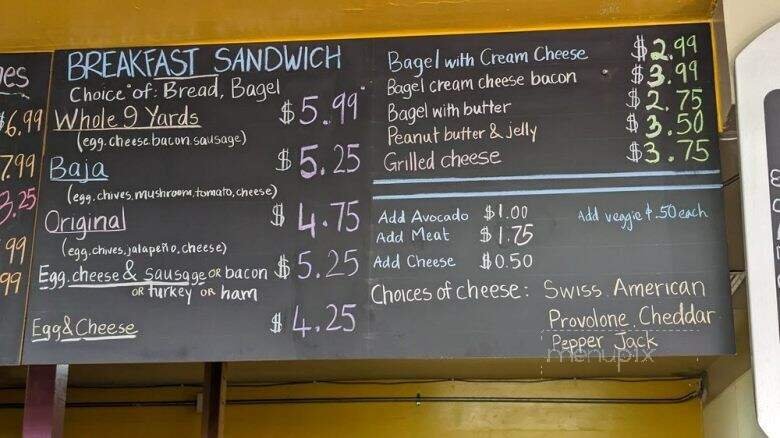 es
$6.99
7.99
3.25
.99
99
BREAKFAST SANDWICH
Choice of: Bread, Bagel
Whole 9 Yards $5.99
(egg.cheese.bacon.sausage)
Baja $5.25
(egg.chives.mushroom.tomato.cheese)
Original $4.75
(egg.chives.jalapeño.cheese)
Egg.cheese & Sausage OR bacon $5.25
OR turkey OR ham
Egg & Cheese $4.25
Bagel with Cream Cheese $2.99
Bagel cream cheese bacon $3.99
Bagel with butter $2.75
Peanut butter & jelly $3.50
Grilled cheese $3.75
Add Avocado $1.00 Add veggie $.50 each
Add Meat $1.75
Add Cheese $0.50
Choices of cheese: Swiss. American
Provolone. Cheddar
Pepper Jack
menupix